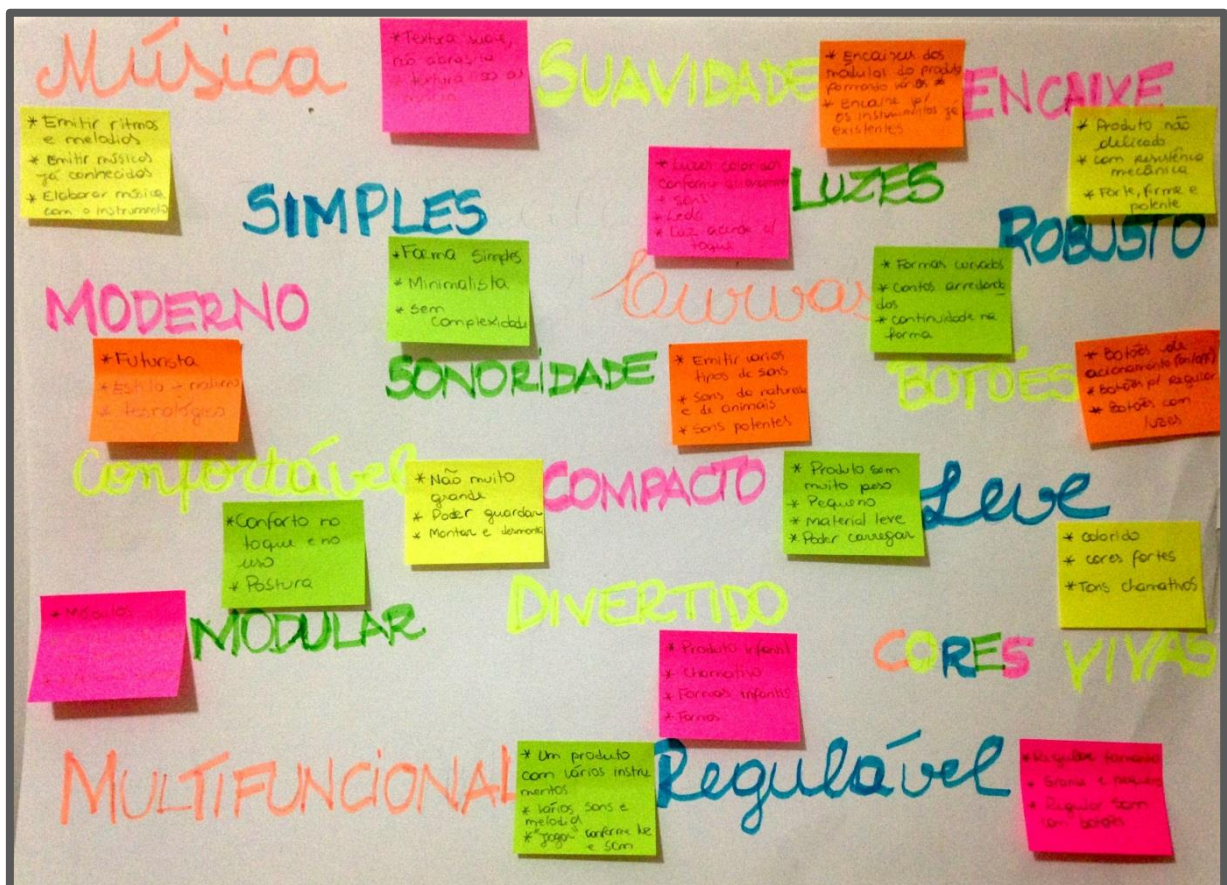 Música
* Emitir ritmos
e melodias
* Emitir músicas
já conhecidas
* Elaborar música
com o instrumento
* Textura suave,
não abrasiva
* textura lisa ou
SUAVIDADE
* Encaixes dos
módulos do produto
formando vários
* Encaixe p/
os instrumentos já
existentes
ENCAIXE
* Produto não
delicado
* com resistência
mecânica
* Forte, firme e
potente
SIMPLES
* Forma simples
* Minimalista
* sem
complexidade
* Luzes coloridas
conforme
* sons
* Leds
* Luz acende c/
toque
LUZES
ROBUSTO
MODERNO
* Futurista
* Estilo
* tecnológico
Curvas
* Formas curvadas
* cantos arredonda
dos
* continuidade na
forma
SONORIDADE
* Emitir varios
tipos de sons
* Sons da natureza
e de animais
* Sons potentes
BOTÕES
* Botões de
acionamento (on/off)
* Botões p/ regular
* Botões com
luzes
Confortável
* Conforto no
toque e no
uso
* Postura
* Não muito
grande
* Poder guardar
* Montar e desmontar
COMPACTO
* Produto sem
muito peso
* Pequeno
* Material leve
* Poder carregar
Leve
* colorido
* cores fortes
* Tons chamativos
* Módulos
MODULAR
DIVERTIDO
* Produto infantil
* Chamativo
* Formas infantis
CORES VIVAS
MULTIFUNCIONAL
* Um produto
com vários instru
mentos
* Vários sons e
melodias
* "Jogos" conforme luz
e som
Regulável
* Regular tamanho
* Grande e pequeno
* Regular som
com botões